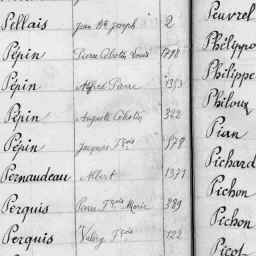 Pellais Jean Bte Joseph 2
Pépin Pierre Célestin Louis
Pépin Alfred Pierre 1353
Pépin Auguste Célestin 322
Pépin Jacques Fçois 578
Pernaudeau Albert 1377
Perquis Pierre Fçois Marie 389
Perquis Valéry Fçois 122
Peuvrel
Philippo
Philippe
Philoux
Pian
Pichard
Pichon
Pichon
Picot